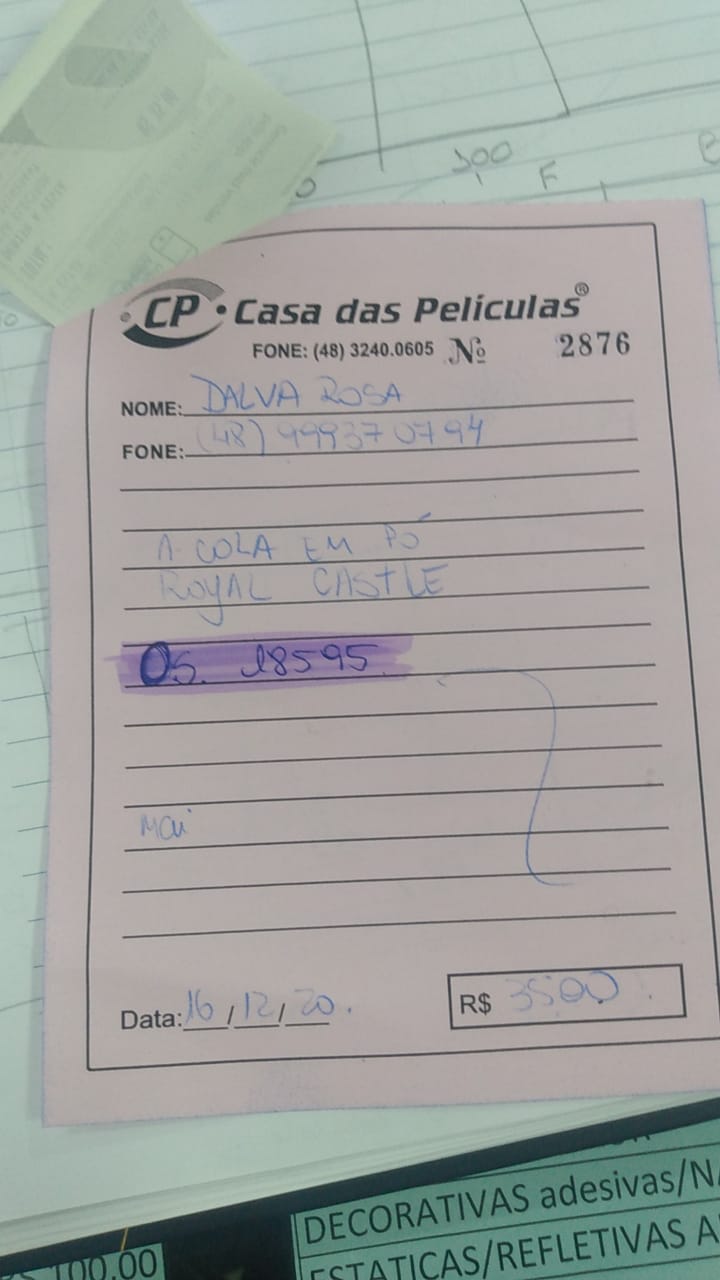 300
F
CP • Casa das Películas®
FONE: (48) 3240.0605 Nº 2876
NOME: DALVA ROSA
FONE: (48) 999370794
1 COLA EM PÓ
ROYAL CASTLE
OS. 18595
Mai
Data: 16/12/20.
R$ 3500
DECORATIVAS adesivas/NA
100,00
ESTATICAS/REFLETIVAS A